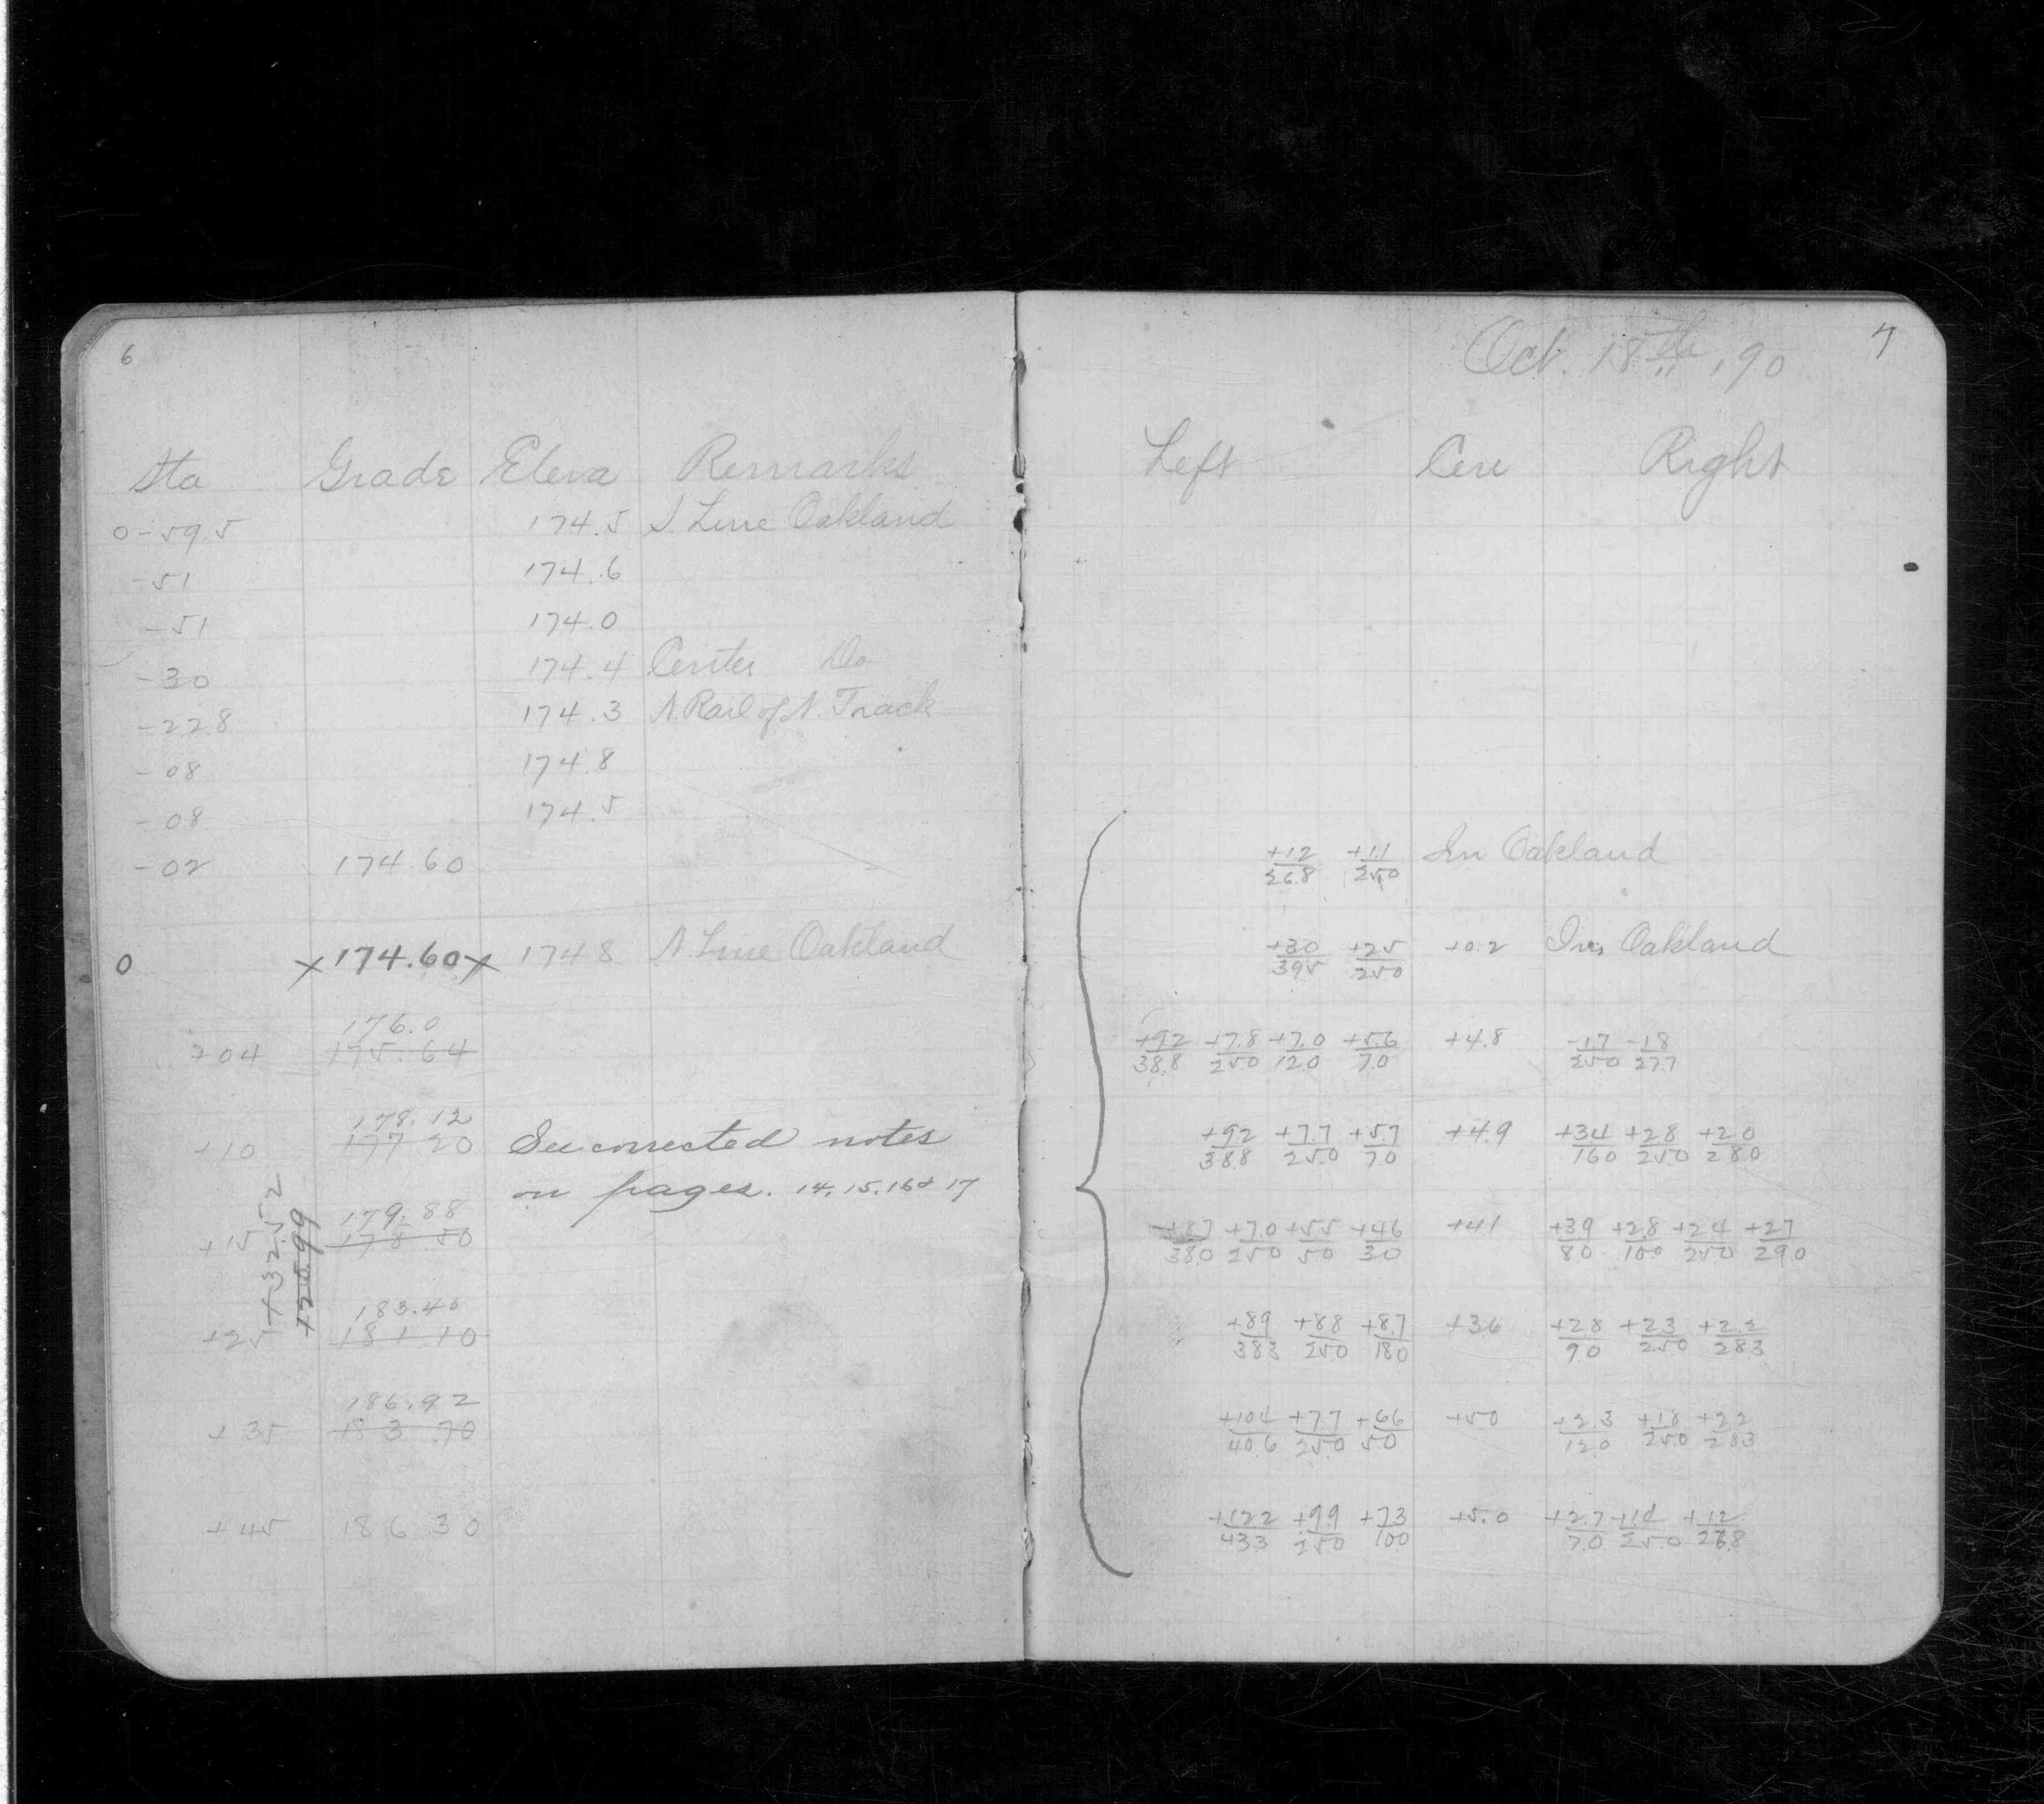 6
Sta Grade Eleva Remarks
0-59.5 174.5 S. Line Oakland
-51 174.6
-51 174.0
-30 174.4 Center Do
-22.8 174.3 N. Rail of N. Track
-08 174.8
-08 174.5
-02 174.60
0 x 174.60 x 174.8 N Line Oakland
176.0
+04 175.64
178.12
+10 177 20 See corrected notes
on pages. 14. 15. 16 & 17
179.88
+15 178 50
+32.52
183.40
+25 181 10
186.92
+35 183 .70
+45 186 30
7
Oct. 18th, 90
Left Cen Right
+1.2/26.8 +1.1/25.0 In Oakland
+3.0/39.5 +2.5/25.0 +0.2 In Oakland
+9.2/38.8 +7.8/25.0 +7.0/12.0 +5.6/7.0 +4.8 -1.7/25.0 -1.8/27.7
+9.2/38.8 +7.7/25.0 +5.7/7.0 +4.9 +3.4/16.0 +2.8/25.0 +2.0/28.0
+8.7/38.0 +7.0/25.0 +5.5/5.0 +4.6/3.0 +4.1 +3.9/8.0 +2.8/10.0 +2.4/25.0 +2.7/29.0
+8.9/38.3 +8.8/25.0 +8.7/18.0 +3.6 +2.8/9.0 +2.3/25.0 +2.2/28.3
+10.4/40.6 +7.7/25.0 +6.6/5.0 +5.0 +2.3/12.0 +1.8/25.0 +2.2/28.3
+12.2/43.3 +9.9/25.0 +7.3/10.0 +5.0 +2.7/7.0 +1.2/26.8